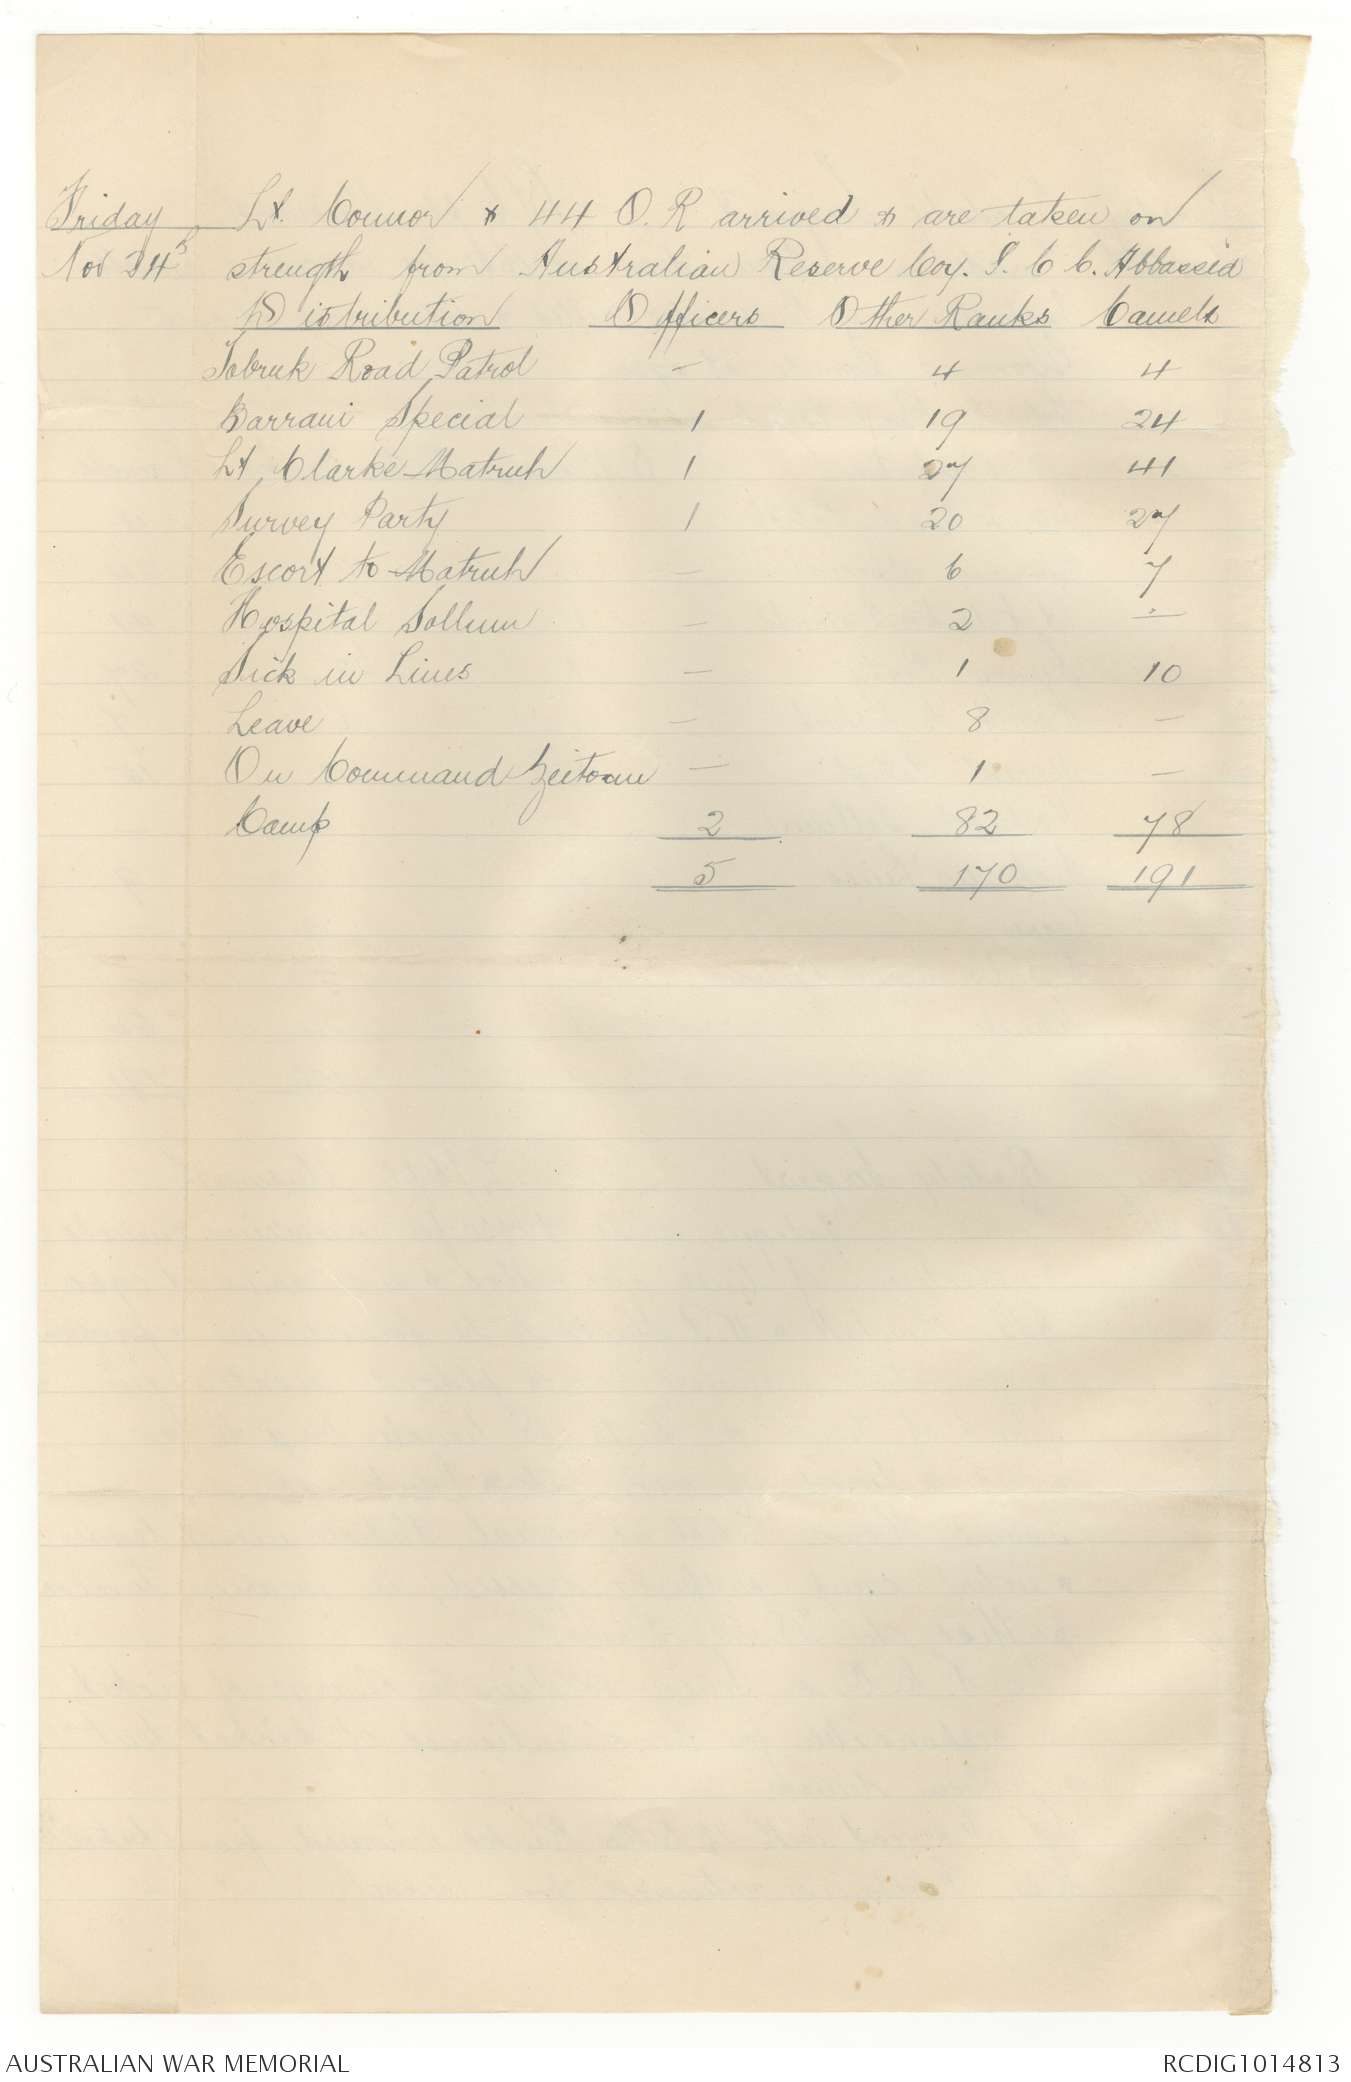 Friday Lt. Connor & 44 O.R arrived & are taken on
Nov 24th strength from Australian Reserve Coy. I. C C. Abbassia
Distribution Officers Other Ranks Camels
Tobruk Road Patrol - 4 4
Barrani Special 1 19 24
Lt Clarke Matruh 1 27 41
Survey Party 1 20 27
Escort to Matruh - 6 7
Hospital Sollum - 2 -
Sick in Lines - 1 10
Leave - 8 -
On Command Zeitoun - 1 -
Camp 2 82 78
5 170 191
AUSTRALIAN WAR MEMORIAL RCDIG1014813